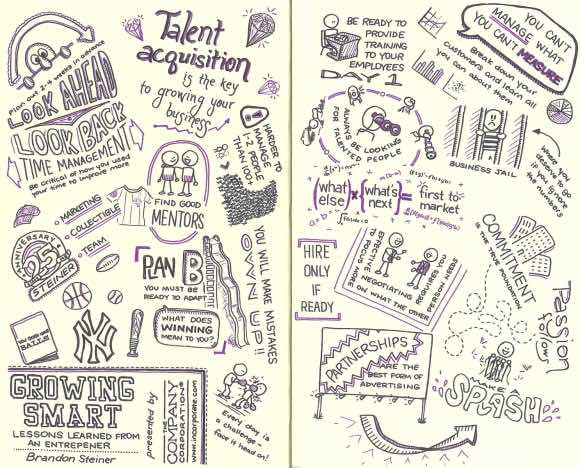 Plan out 2-4 weeks in advance
LOOK AHEAD
LOOK BACK
TIME MANAGEMENT
Be critical of how you used
your time to improve more
Talent
acquisition
is the key
to growing your
business
HARDER TO
MANAGE
1-2 PEOPLE
THAN 100+
FIND GOOD
MENTORS
MARKETING
COLLECTIBLE
TEAM
ANNIVERSARY
25
STEINER
PLAN B
YOU MUST BE
READY TO ADAPT
WHAT DOES
WINNING
MEAN TO YOU?
YOU WILL MAKE MISTAKES
OWN UP!!
BALLS
NY
GROWING
SMART
LESSONS LEARNED FROM
AN ENTREPENER
Brandon Steiner
presented by
THE
COMPANY
CORPORATION
www.incorporate.com
Every day is
a challenge,
face it head on!
BE READY TO
PROVIDE
TRAINING
TO YOUR
EMPLOYEES
DAY 1
YOU CAN'T
MANAGE WHAT
YOU CAN'T MEASURE
Break down your
customers and learn all
you can about them
ALWAYS BE LOOKING
FOR TALENTED PEOPLE
BUSINESS JAIL
where you
deserve to go
if you ignore
the numbers
(what else) x (what's next) = first to market
HIRE
ONLY
IF
READY
EFFECTIVE NEGOTIATING
REQUIRES YOU
TO FOCUS MORE ON WHAT THE OTHER
PERSON NEEDS
COMMITMENT
IS THE TRUE FOUNDATION
Passion
to
Own
PARTNERSHIPS
ARE THE
BEST FORM OF
ADVERTISING
MAKE A
SPLASH